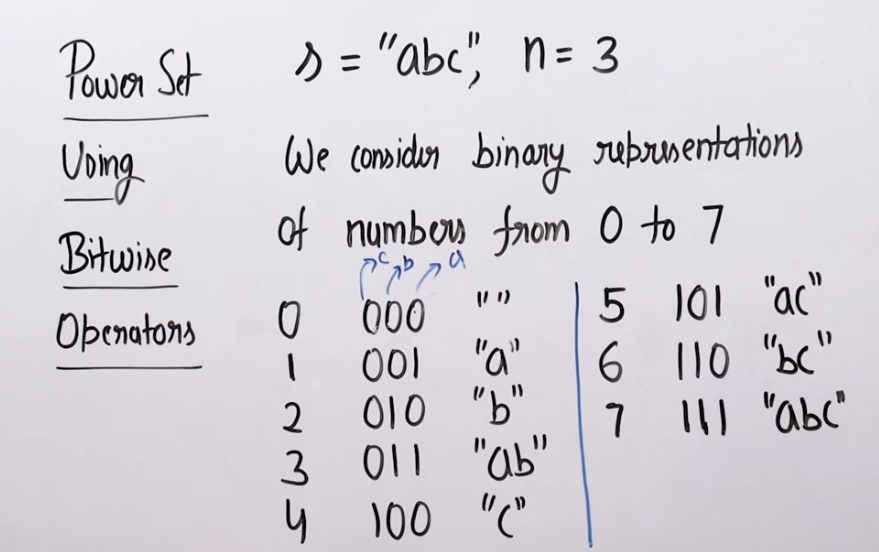 Power Set
Using
Bitwise
Operators
s = "abc", n = 3
We consider binary representations
of numbers from 0 to 7
c b a
0 000 ""
1 001 "a"
2 010 "b"
3 011 "ab"
4 100 "c"
5 101 "ac"
6 110 "bc"
7 111 "abc"